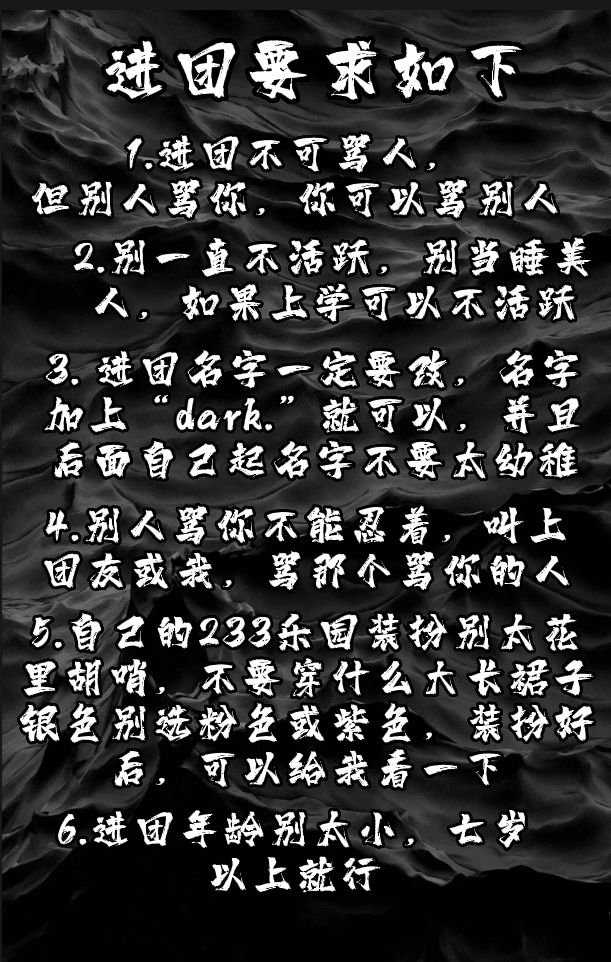 进团要求如下
1.进团不可骂人，
但别人骂你，你可以骂别人
2.别一直不活跃，别当睡美
人，如果上学可以不活跃
3. 进团名字一定要改，名字
加上“dark.”就可以，并且
后面自己起名字不要太幼稚
4.别人骂你不能忍着，叫上
团友或我，骂那个骂你的人
5.自己的233乐园装扮别太花
里胡哨，不要穿什么大长裙子
银色别选粉色或紫色，装扮好
后，可以给我看一下
6.进团年龄别太小，七岁
以上就行